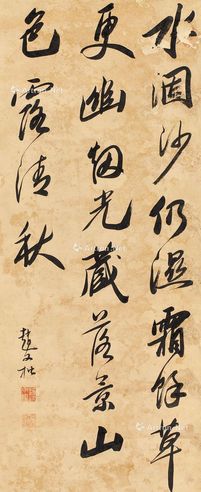 水涸沙仍濕霜餘草
更幽烟光藏落景山
色露清秋
趙文楷